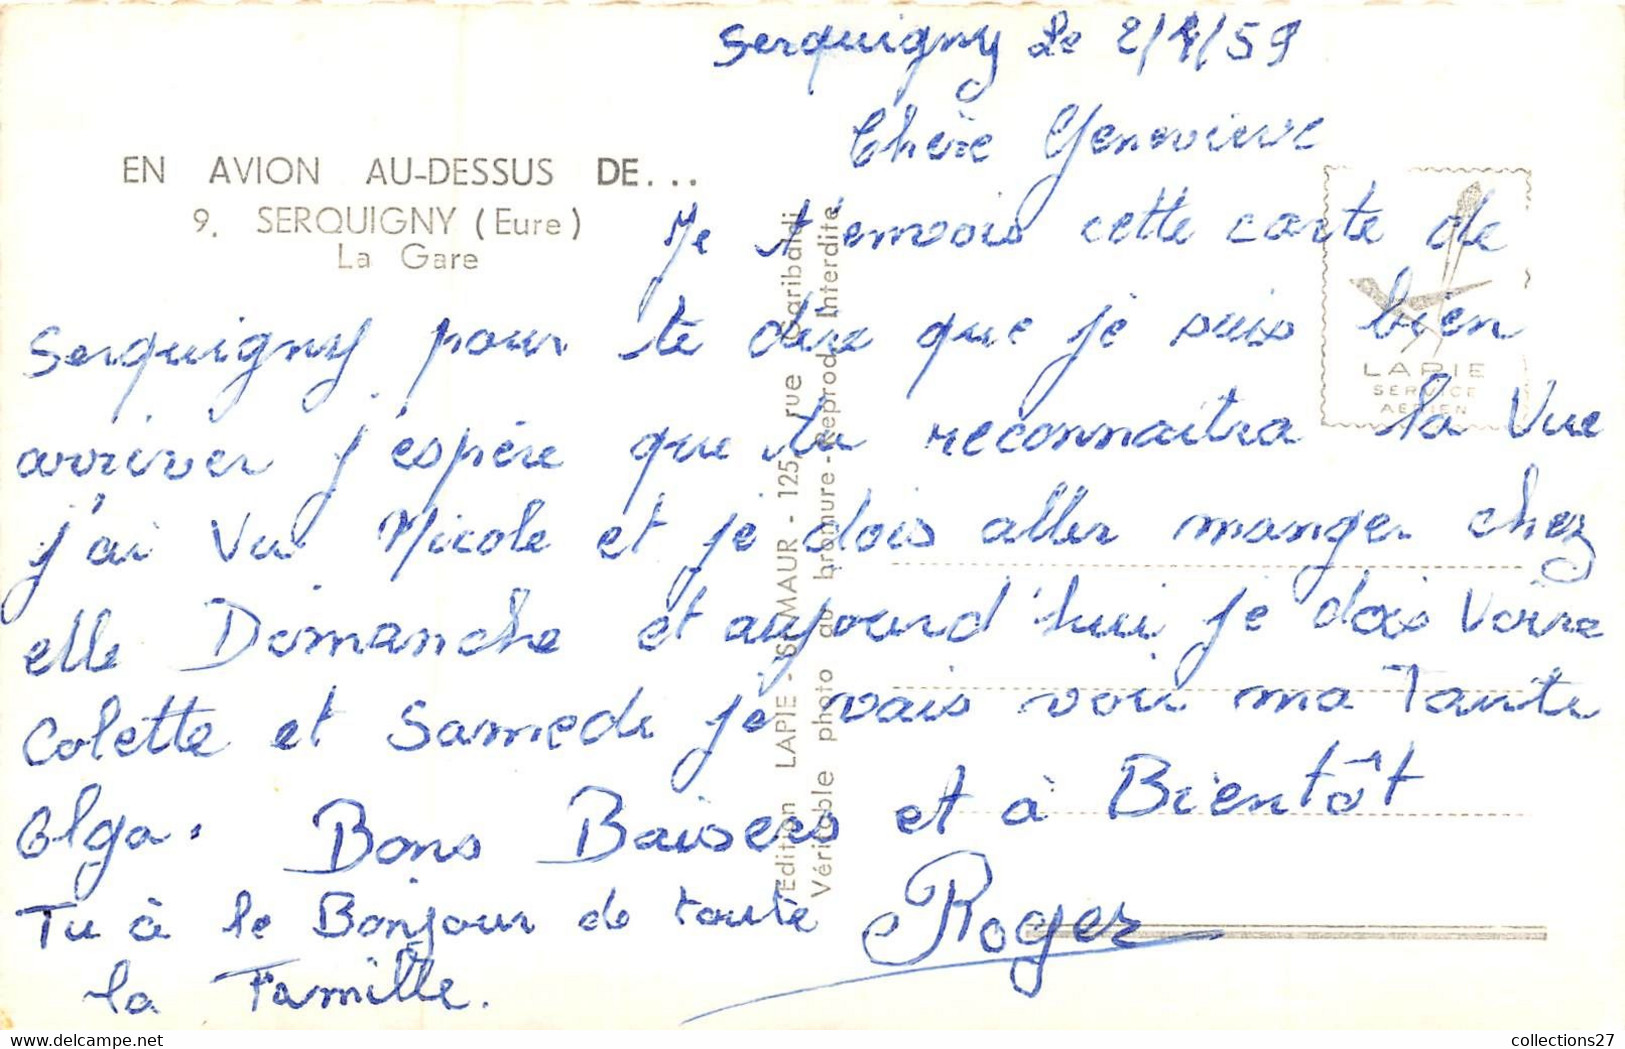 Serquigny Le 2/4/59
Chère Geneviève
EN AVION AU-DESSUS DE...
9. SERQUIGNY (Eure)
La Gare
Je t'envois cette carte de
Serquigny pour te dire que je suis bien
arriver j'espère que tu reconnaitra la Vue
j'ai Vu Nicole et je dois aller manger chez
elle Dimanche et aujourd'hui je dois Voire
Colette et Samedi je vais voir ma Tante
Olga. Bons Baisers et à Bientôt
Tu à le Bonjour de toute
la Famille.
Roger
Edition LAPIE - St-MAUR - 125, rue Garibaldi
Véritable photo au bromure - Reprod. Interdite
LAPIE
SERVICE
AERIEN
collections27